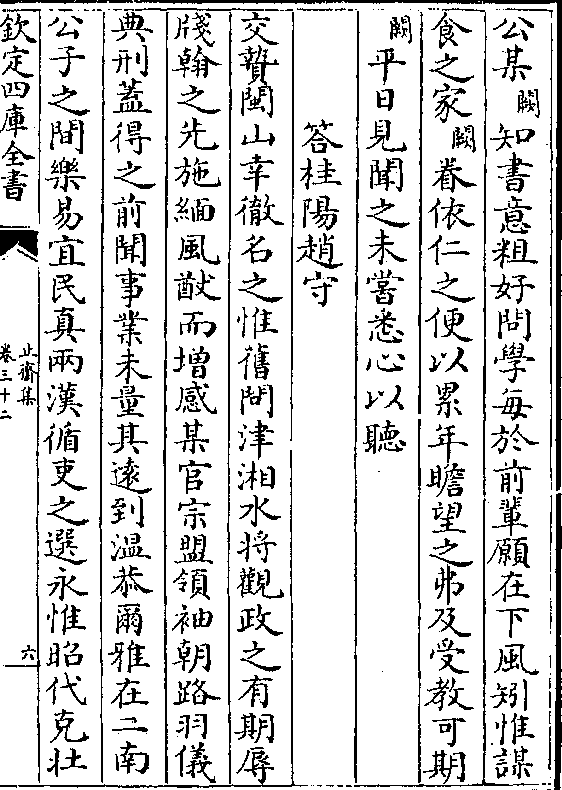 公某闕知書意粗好問學每於前輩願在下風矧惟謀
食之家闕眷依仁之便以累年瞻望之弗及受教可期
闕平日見聞之未嘗悉心以聽
答桂陽趙守
交贄閩山幸徹名之惟舊問津湘水將觀政之有期辱
牋翰之先施緬風猷而增感某官宗盟領袖朝路羽儀
典刑蓋得之前聞事業未量其逺到溫恭爾雅在二南
公子之間樂易宜民真兩漢循吏之選永惟昭代克壯
欽定四庫全書
止齋集
卷三十二
六